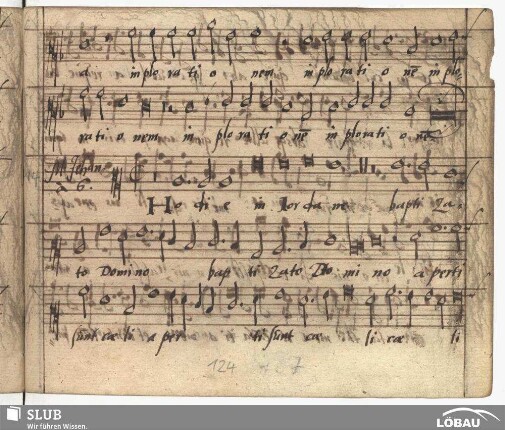 di in plo ra ti o nem in plo ra ti o nē in plo
rati o nem in plo ra ti o nē in plorati o nē
à 6.
Ho di e in Jor da ne bapti za-
to Domino bap ti zato Do mi no a perti
sunt cæ li a per ti sunt cæ li cæ li
124
SLUB
Wir führen Wissen.
LÖBAU